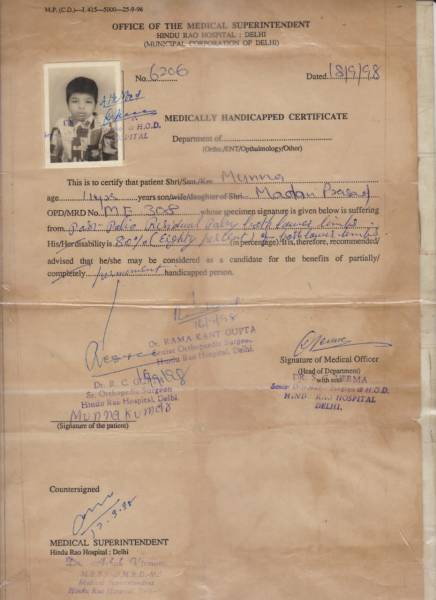 M.P. (C.D.)—J. 415—5000—25-9-96
OFFICE OF THE MEDICAL SUPERINTENDENT
HINDU RAO HOSPITAL : DELHI
(MUNICIPAL CORPORATION OF DELHI)
No. 6206 Dated 18/9/98
MEDICALLY HANDICAPPED CERTIFICATE
Attested
H.O.D.
HOSPITAL
Department of
(Ortho./ENT/Opthalmology/Other)
This is to certify that patient Shri/Smt./Km Munna
age 11 yrs years son/wife/daughter of Shri Madan Prasad
OPD/MRD No. M.E 308 whose specimen signature is given below is suffering
from Post Polio Residual Palsy both lower limbs
His/Her disability is 80% (Eighty percent) of both lower limbs (in percentage). It is, therefore, recommended/
advised that he/she may be considered as a candidate for the benefits of partially/
completely permanent handicapped person.
16/9/98
Dr. RAMA KANT GUPTA
Senior Orthopaedic Surgeon
Hindu Rao Hospital, Delhi.
Signature of Medical Officer
(Head of Department)
with seal
Dr. R. C.
Sr. Orthopaedic Surgeon
Hindu Rao Hospital, Delhi.
VERMA
H.O.D.
HINDU RAO HOSPITAL
DELHI.
Munna Kumar
(Signature of the patient)
Countersigned
17.9.98
MEDICAL SUPERINTENDENT
Hindu Rao Hospital : Delhi
Medical Superintendent
Hindu Rao Hospital, Delhi